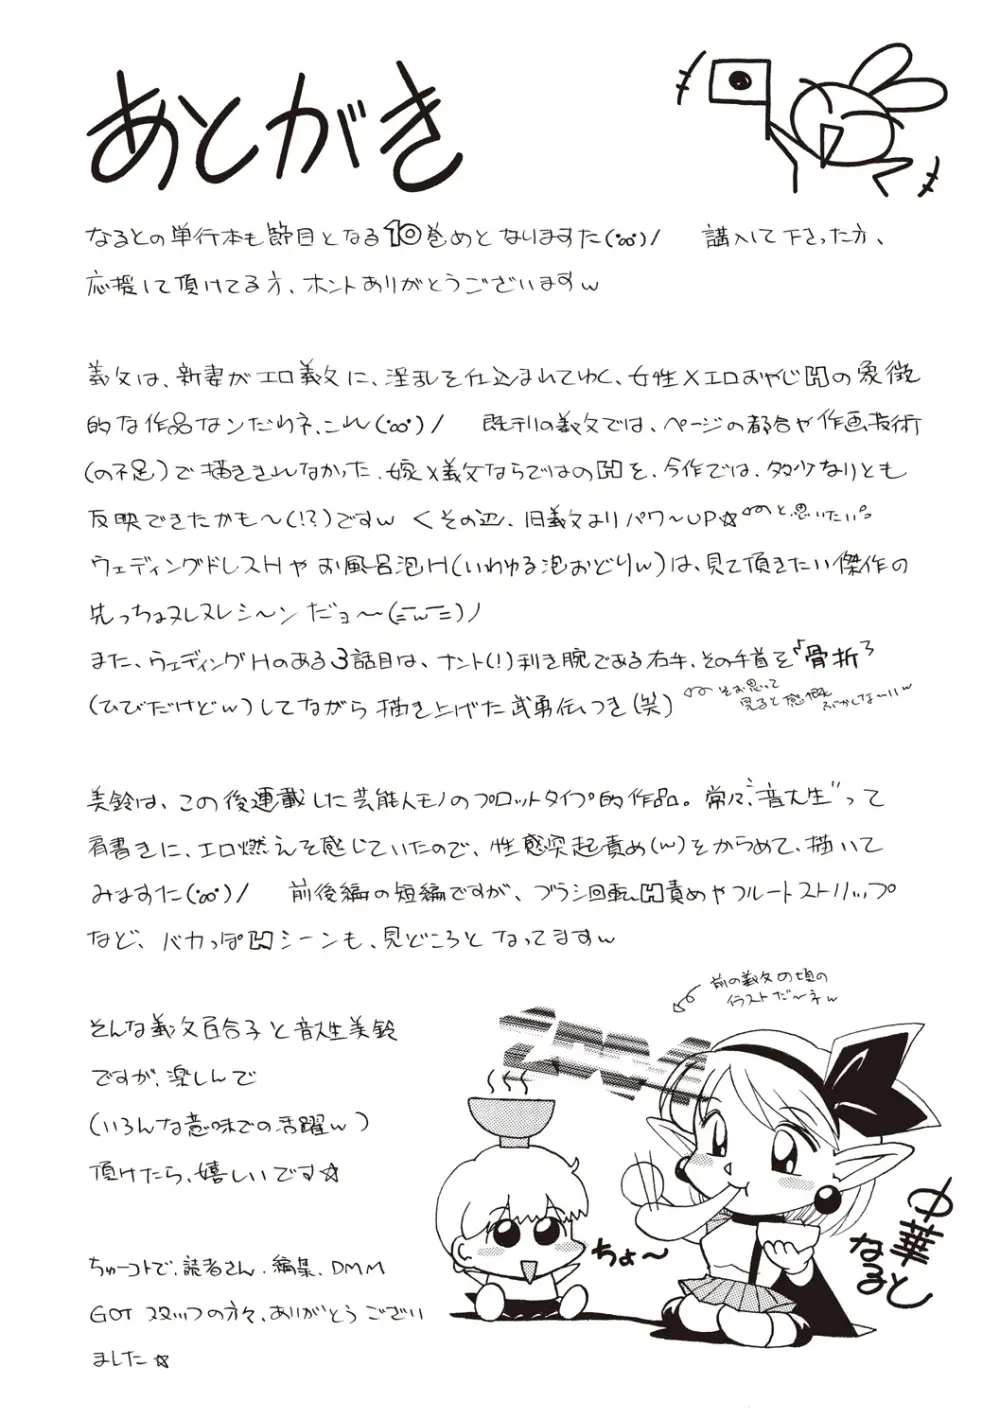 あとがき
なるとの単行本も節目となる10巻めとなりますた(･ω･)/　講入して下さった方、
応援して頂けてる方、ホントありがとうございますw
義父は、新妻がエロ義父に、淫乱を仕込まれてゆく、女性×エロおやじHの象徴
的な作品なンだわネ、これ(･ω･)/　既刊の義父では、ページの都合や作画技術
(の不足)で描ききれなかった、嫁×義父ならではのHを、今作では、多少なりとも
反映できたかも〜(!?)ですw くその辺、旧義父よりパワ〜UP☆ と、思いたい。
ウェディングドレスHや お風呂泡H(いわゆる泡おどりw)は、見て頂きたい傑作の
先っちょヌレヌレシ〜ン だョ〜(=ˉwˉ=)ノ
また、ウェディングHのある3話目は、ナント(!)利き腕である右手、その手首を「骨折」
(ひびだけどw)してながら 描き上げた武勇伝つき(笑)
そお思って
見ると感慨
ぶかしな〜いw
美鈴は、この後連載した芸能人モノのプロットタイプ的作品。常々、“音大生”って
肩書きに、エロ燃えを感じていたので、性感突起責め(w)をからめて、描いて
みますた(･ω･)/　前後編の短編ですが、ブラシ回転H責めやフルートストリップ
など、バカっぽHシーンも、見どころと なってますw
前の義父の頃の
イラストだ〜ネw
そんな義父百合子と音大生美鈴
ですが、楽しんで
(いろんな意味での活躍w)
頂けたら、嬉しいです☆
ちゅーコトで、読者さん、編集、DMM
GOT スタッフの方々、ありがとうござい
ました☆
ちょ〜
中華
なると